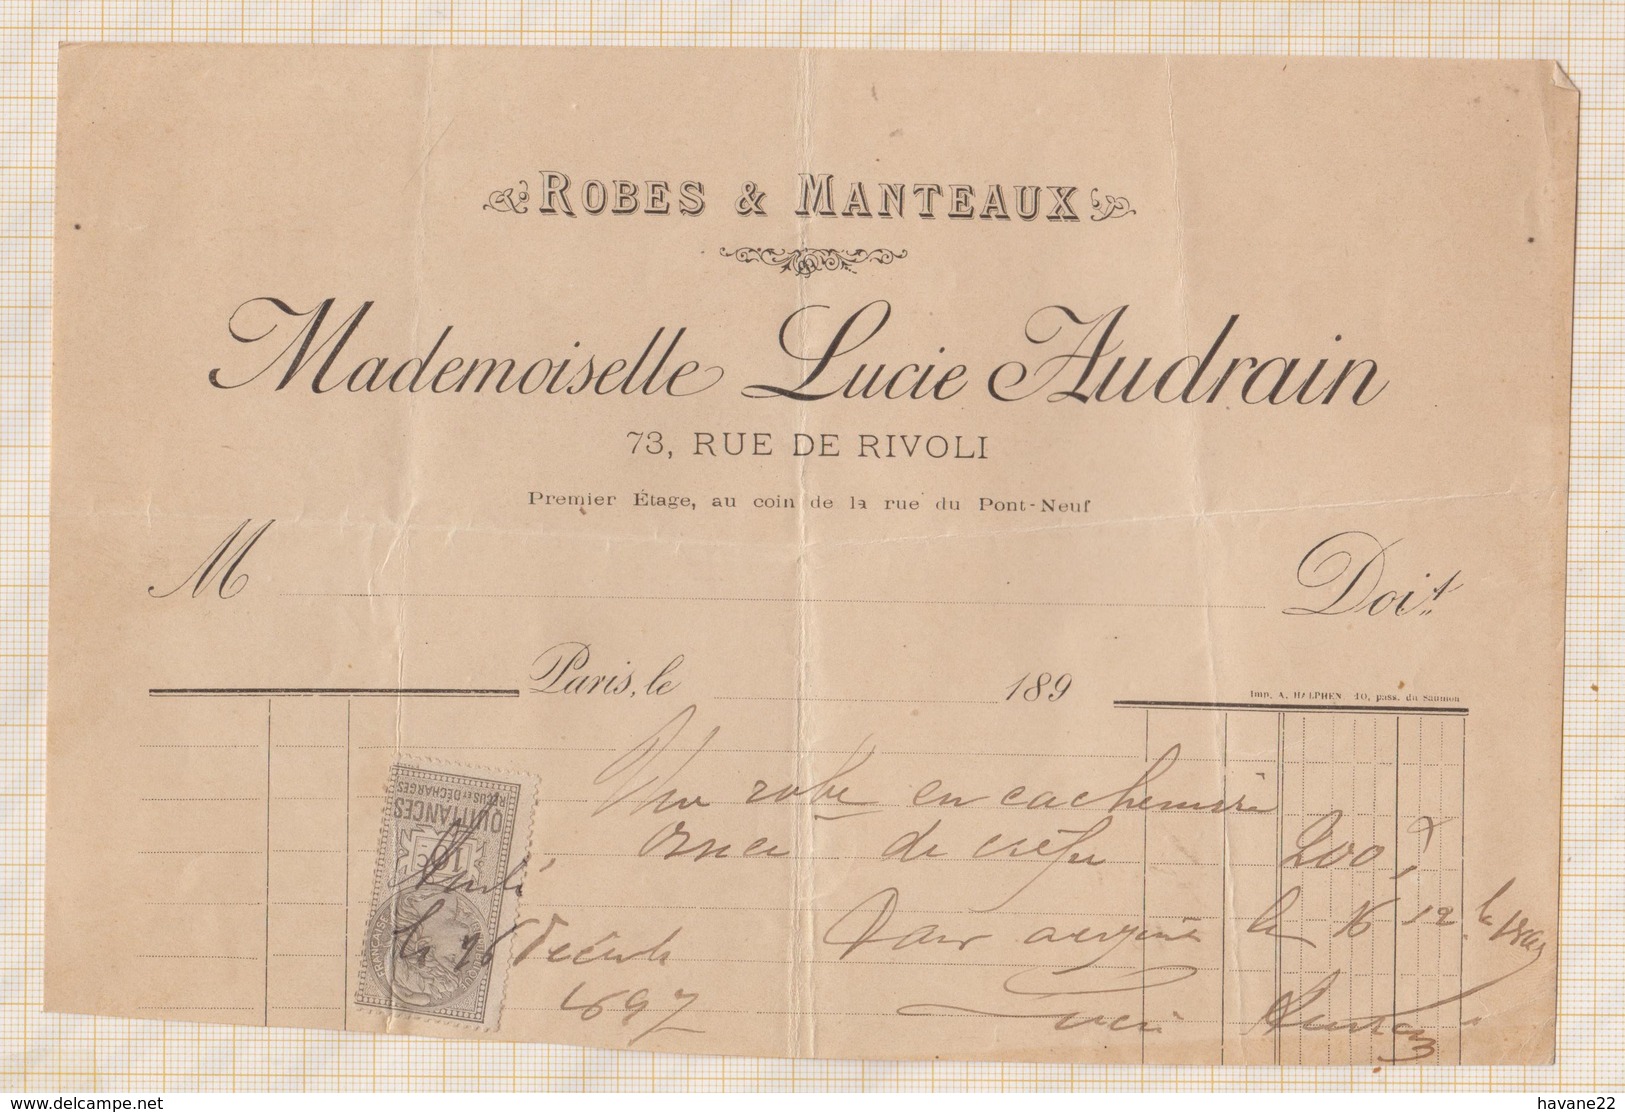 ROBES & MANTEAUX
Mademoiselle Lucie Audrain
73, RUE DE RIVOLI
Premier Étage, au coin de la rue du Pont-Neuf
M Doit
Paris, le 189
Imp. A. HALPHEN, 10, pass. du Saumon
Une robe en cachemire
QUITTANCES
REÇUS ET DÉCHARGES
10 C
FRANÇAISE
de crêpe 200
le 16 12
le 16 Décembre
1897
Lucie Audrain
delcampe.net
havane22